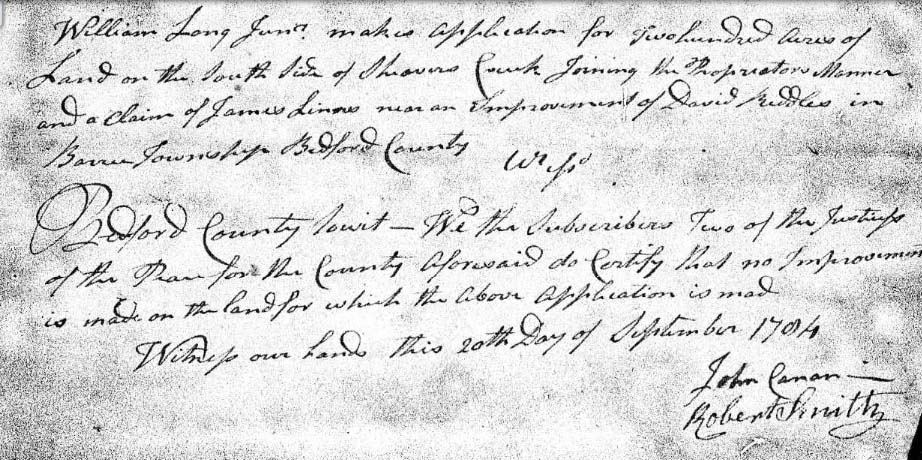 William Long Junr. makes application for Two hundred Acres of
Land on the South Side of Shavers Creek Joining the Proprietors Manner
and a Claim of James Linns near an Improvement of David Riddles in
Barree Township Bedford County
Wt Issd
Bedford County towit — We the Subscribers Two of the Justices
of the Peace for the County Aforesaid do Certify that no Improvemen
is made on the land for which the above Application is mad
Witness our hands this 20th Day of September 1784
John Canan
Robert Smith